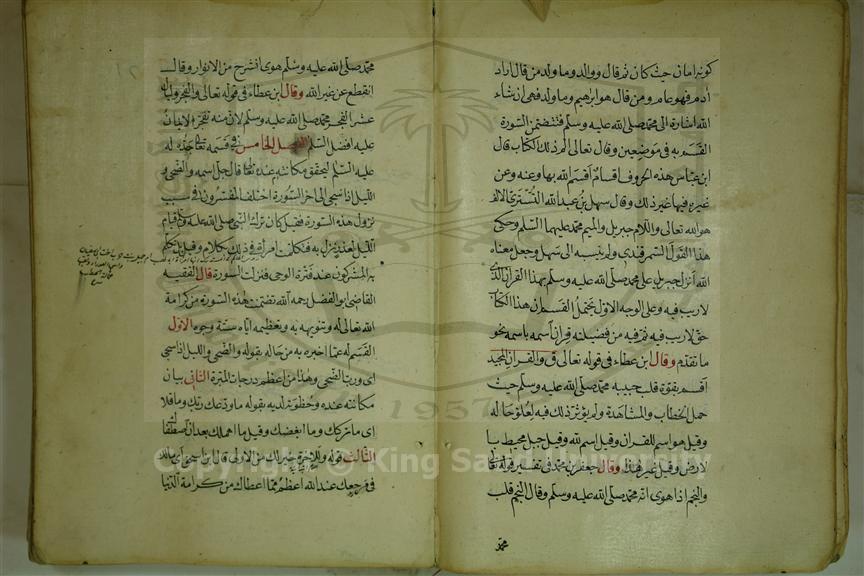 كونه امان حيث كان ثم قال ووالد وما ولد من قال اراد
ادم فهو عام ومن قال هو ابراهيم وما ولد فهي ان شاء
الله اشارة الى محمد صلى الله عليه وسلم فتتضمن السورة
القسم به في موضعين وقال تعالى الم ذلك الكتاب قال
ابن عباس هذه الحروف اقسام اقسم الله بها وعنه وعن
غيره فيها غير ذلك وقال سهل بن عبد الله التستري الالف
هو الله تعالى واللام جبريل والميم محمد عليهما السلم وحكى
هذا القول السمرقندي ولم ينسبه الى سهل وجعل معناه
الله انزل جبريل على محمد صلى الله عليه وسلم بهذا القران الذي
لا ريب فيه وعلى الوجه الاول يحتمل القسم ان هذا الكتاب
حق لا ريب فيه ثم فيه من فضيلته قران اسمه باسمه نحو
ما تقدم وقال ابن عطاء في قوله تعالى ق والقران المجيد
اقسم بقوة قلب حبيبه محمد صلى الله عليه وسلم حيث
حمل الخطاب والمشاهدة ولم يؤثر ذلك فيه لعلو حاله
وقيل هو اسم للقران وقيل اسم لله وقيل جبل محيط با
لارض وقيل غير هذا وقال جعفر بن محمد في تفسير قوله تعالى
والنجم اذا هوى انه محمد صلى الله عليه وسلم وقال النجم قلب
محمد
محمد صلى الله عليه وسلم هوى انشرح من الانوار وقال
انقطع عن غير الله وقال ابن عطاء في قوله تعالى والفجر وليال
عشر الفجر محمد صلى الله عليه وسلم لان منه تفجر الايمان
عليه افضل السلم الفصل الخامس في قسمه تعالى جده له
عليه السلم ليحقق مكانته عنده قال جل اسمه والضحى و
الليل اذا سجى الى اخر السورة اختلف المفسرون في سبب
نزول هذه السورة فقيل كان ترك النبي صلى الله عليه وسلم قيام
الليل لعذر نزل به فتكلمت امرأة في ذلك بكلام وقيل بل تكلم
به المشركون عند فترة الوحي فنزلت السورة قال الفقيه
القاضي ابو الفضل رحمه الله تضمنت هذه السورة من كرامة
الله تعالى له وتنويهه به وتعظيمه اياه ستة وجوه الاول
القسم له عما اخبره به من حاله بقوله والضحى والليل اذا سجى
اي ورب الضحى وهذا من اعظم درجات المبرة الثاني بيان
مكانته عنده وحظوته لديه بقوله ما ودعك ربك وما قلا
اي ما تركك وما ابغضك وقيل ما اهملك بعد ان اصطفاك
الثالث قوله وللاخرة خير لك من الاولى قال ابن اسحق اي مالك
في مرجعك عند الله اعظم مما اعطاك من كرامة الدنيا
1957
Copyright © King Saud University